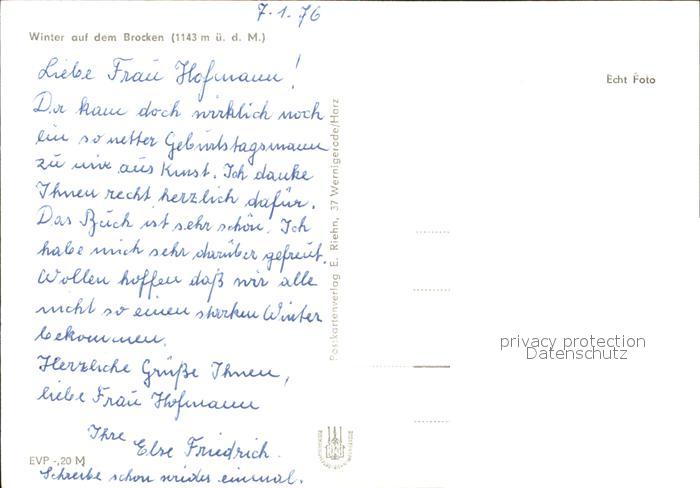 7.1.76
Winter auf dem Brocken (1143 m ü. d. M.)
Echt Foto
Liebe Frau Hofmann!
Da kam doch wirklich noch
ein so netter Geburtstagsmann
zu mir aus Kunst. Ich danke
Ihnen recht herzlich dafür.
Das Buch ist sehr schön. Ich
habe mich sehr darüber gefreut.
Wollen hoffen daß wir alle
nicht so einen starken Winter
bekommen.
Herzliche Grüße Ihnen,
liebe Frau Hofmann
Ihre
Else Friedrich.
Schreibe schon wieder einmal.
EVP -,20 M
Postkartenverlag E. Riehn, 37 Wernigerode/Harz
privacy protection
Datenschutz